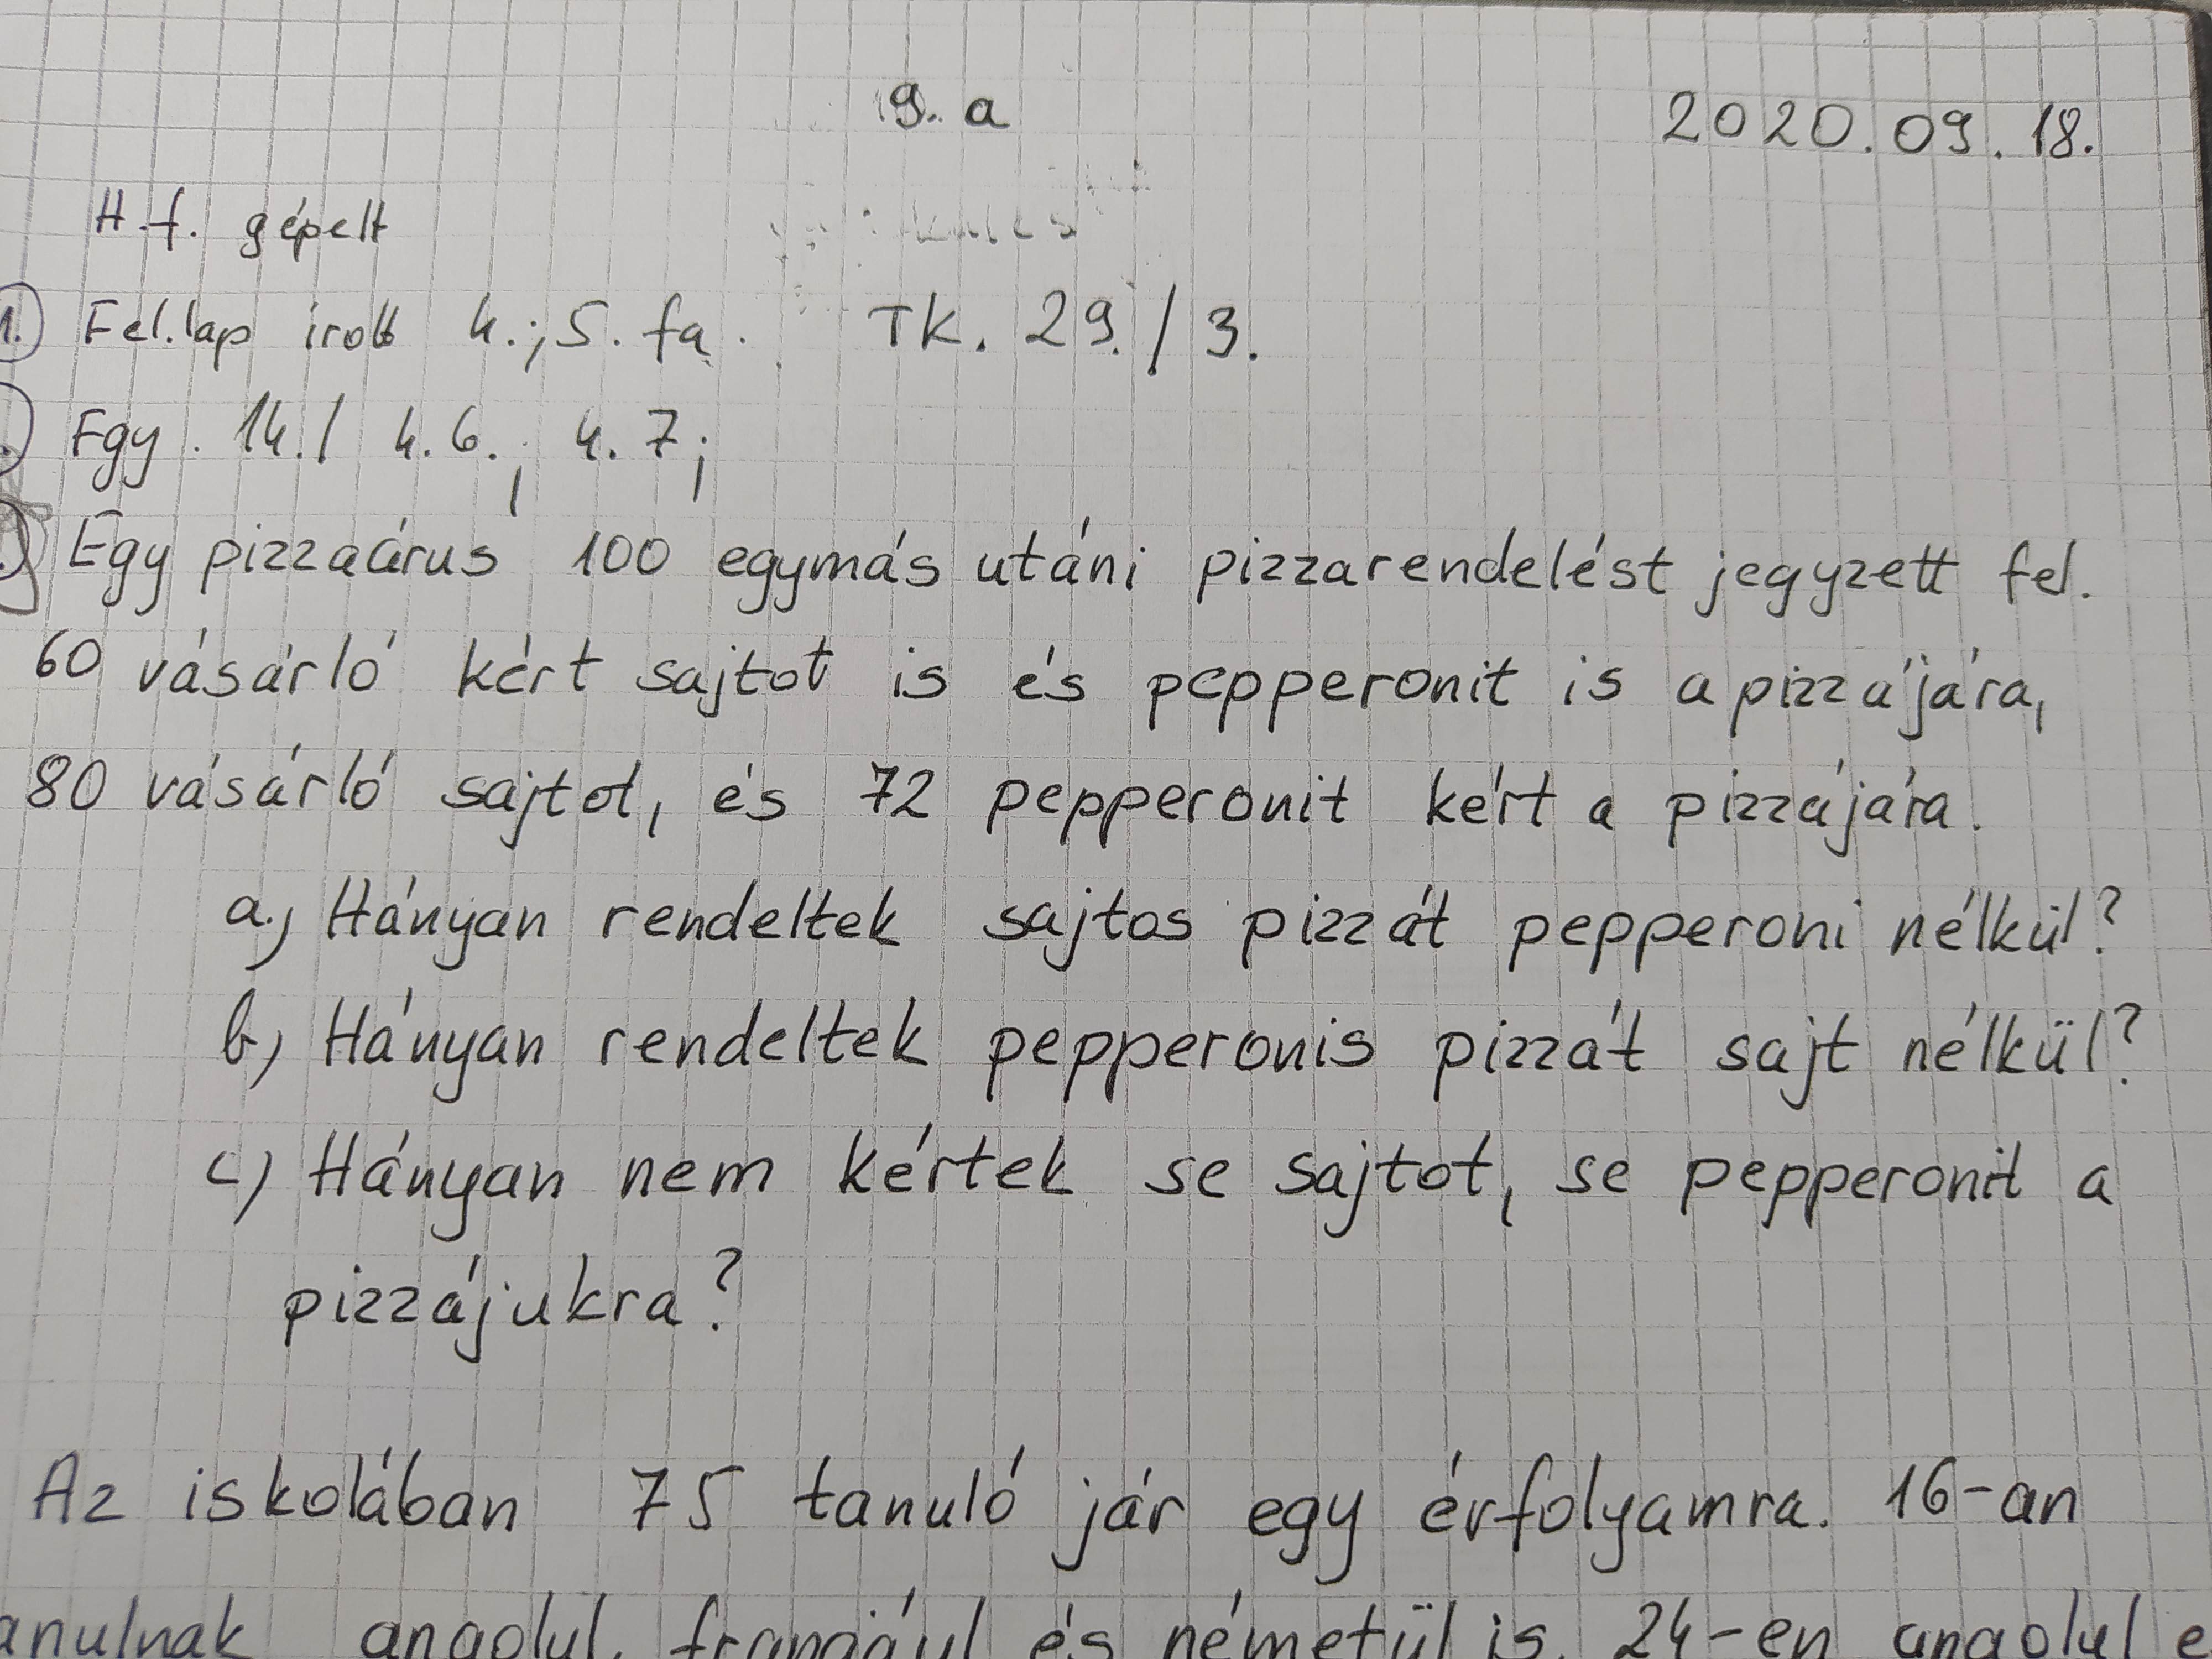 9. a
2020.09.18.
H.f. gépelt
1. Fel.lap írott 4.; 5. fa. Tk. 29./3.
Fgy. 14./ 4.6.; 4.7;
Egy pizzaárus 100 egymás utáni pizzarendelést jegyzett fel.
60 vásárló kért sajtot is és pepperonit is a pizzájára,
80 vásárló sajtot, és 72 pepperonit kért a pizzájára.
a., Hányan rendeltek sajtos pizzát pepperoni nélkül?
b) Hányan rendeltek pepperonis pizzát sajt nélkül?
c) Hányan nem kértek se sajtot, se pepperonit a
pizzájukra?
Az iskolában 75 tanuló jár egy évfolyamra. 16-an
anulnak angolul, franciául és németül is. 24-en angolul